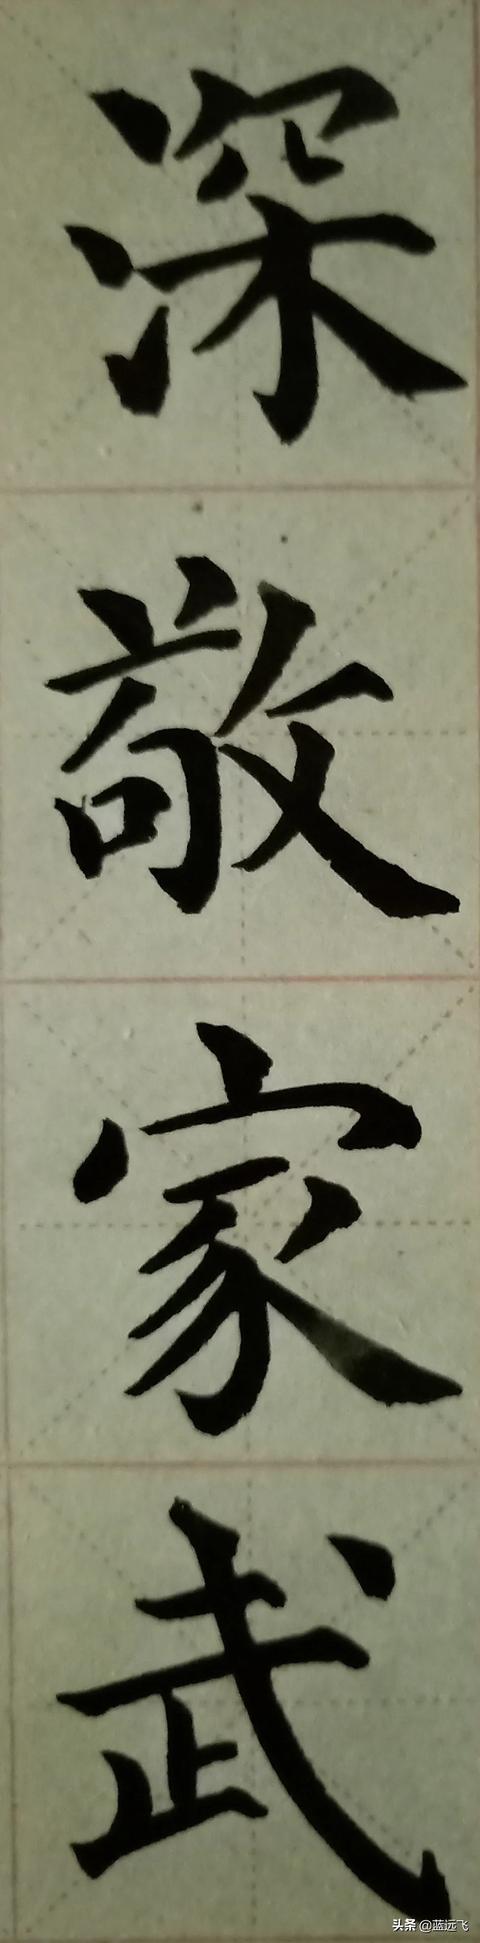 深敬家武
头条 @蓝远飞